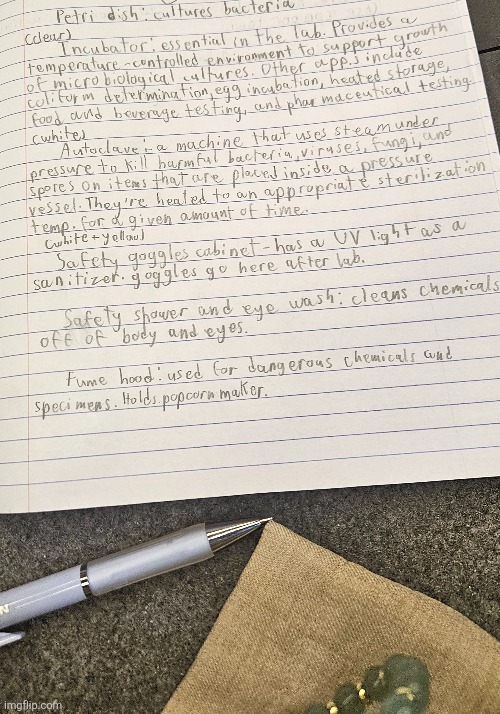 Petri dish: cultures bacteria
(clear)
Incubator: essential in the lab. Provides a
temperature-controlled environment to support growth
of microbiological cultures. Other apps include
coliform determination, egg incubation, heated storage,
food and beverage testing, and pharmaceutical testing.
(white)
Autoclave: a machine that uses steam under
pressure to kill harmful bacteria, viruses, fungi, and
spores on items that are placed inside a pressure
vessel. They're heated to an appropriate sterilization
temp. for a given amount of time.
(white + yellow)
Safety goggles cabinet - has a UV light as a
sanitizer. goggles go here after lab.
Safety shower and eye wash: cleans chemicals
off of body and eyes.
Fume hood: used for dangerous chemicals and
specimens. Holds popcorn maker.
N
imgflip.com